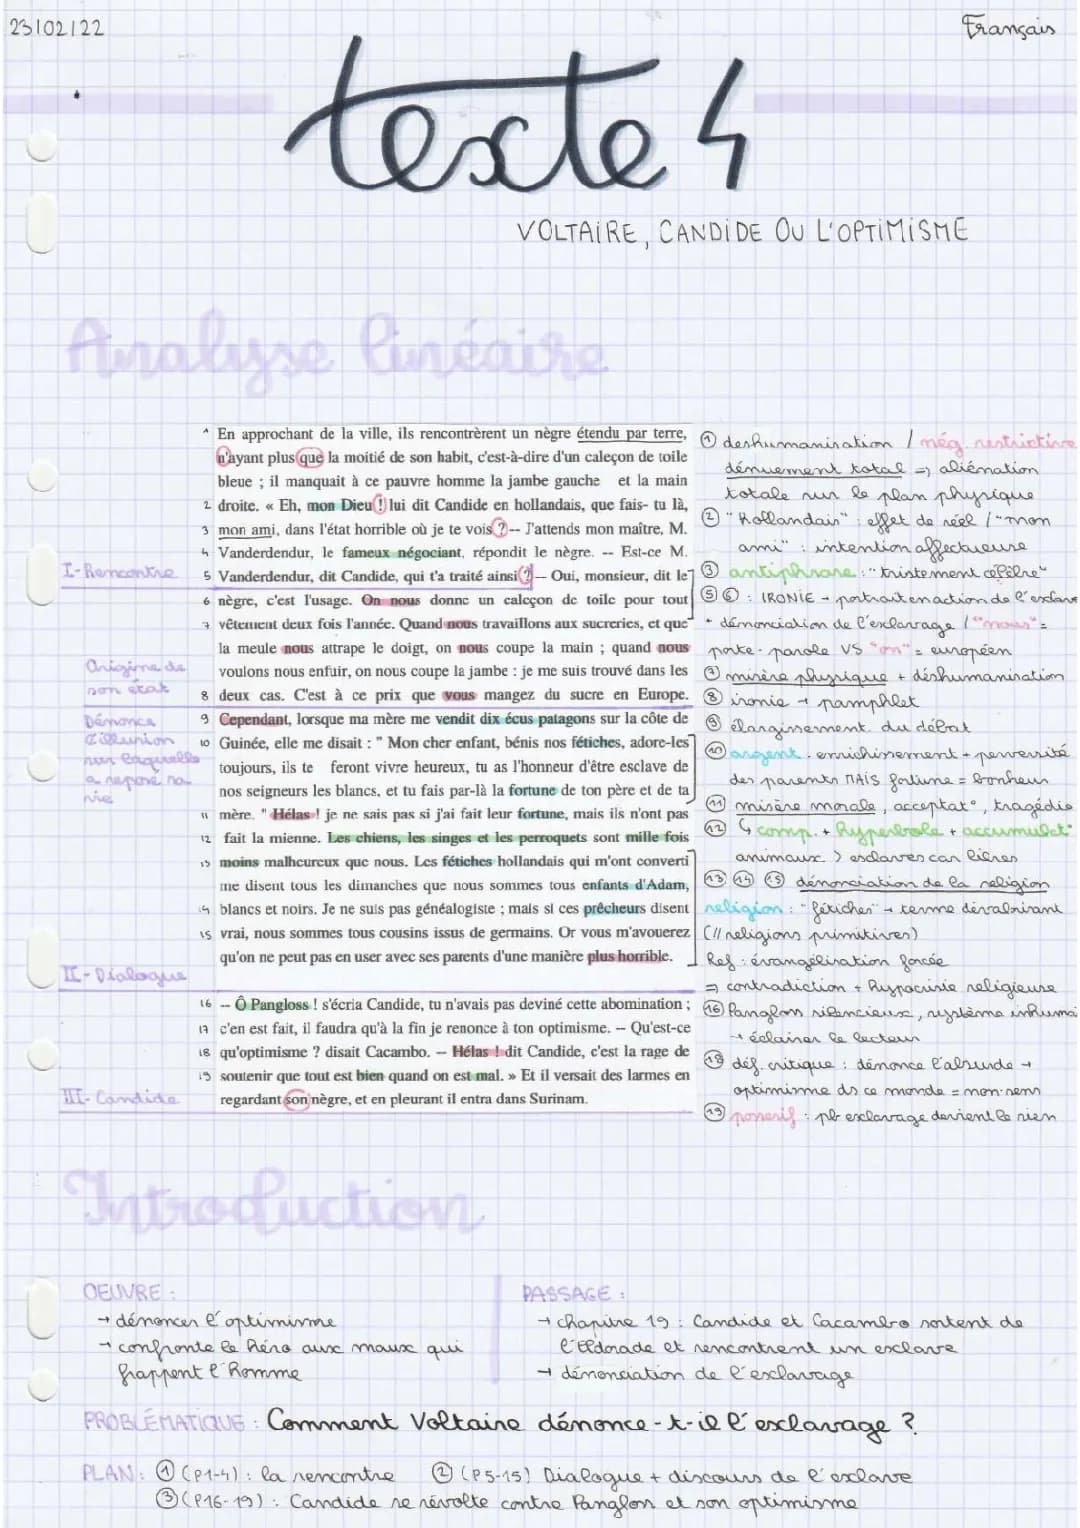 23/02/22
Français
texte 4
VOLTAIRE, CANDIDE OU L'OPTIMISME
Analyse linéaire
1 En approchant de la ville, ils rencontrèrent un nègre étendu par terre,
n'ayant plus que la moitié de son habit, c'est-à-dire d'un caleçon de toile
bleue ; il manquait à ce pauvre homme la jambe gauche et la main
2 droite. « Eh, mon Dieu ! lui dit Candide en hollandais, que fais- tu là,
3 mon ami, dans l'état horrible où je te vois ? -- J'attends mon maître, M.
4 Vanderdendur, le fameux négociant, répondit le nègre. -- Est-ce M.
I- Rencontre
5 Vanderdendur, dit Candide, qui t'a traité ainsi ? -- Oui, monsieur, dit le
6 nègre, c'est l'usage. On nous donne un caleçon de toile pour tout
7 vêtement deux fois l'année. Quand nous travaillons aux sucreries, et que
la meule nous attrape le doigt, on nous coupe la main ; quand nous
voulons nous enfuir, on nous coupe la jambe : je me suis trouvé dans les
8 deux cas. C'est à ce prix que vous mangez du sucre en Europe.
Origine de
son état
9 Cependant, lorsque ma mère me vendit dix écus patagons sur la côte de
10 Guinée, elle me disait : " Mon cher enfant, bénis nos fétiches, adore-les
toujours, ils te feront vivre heureux, tu as l'honneur d'être esclave de
nos seigneurs les blancs, et tu fais par-là la fortune de ton père et de ta
11 mère. " Hélas ! je ne sais pas si j'ai fait leur fortune, mais ils n'ont pas
12 fait la mienne. Les chiens, les singes et les perroquets sont mille fois
13 moins malheureux que nous. Les fétiches hollandais qui m'ont converti
me disent tous les dimanches que nous sommes tous enfants d'Adam,
14 blancs et noirs. Je ne suis pas généalogiste ; mais si ces prêcheurs disent
15 vrai, nous sommes tous cousins issus de germains. Or vous m'avouerez
qu'on ne peut pas en user avec ses parents d'une manière plus horrible.
Dénonce
l'illusion
sur laquelle
a reposé sa
vie
II- Dialogue
16 -- Ô Pangloss ! s'écria Candide, tu n'avais pas deviné cette abomination ;
17 c'en est fait, il faudra qu'à la fin je renonce à ton optimisme. -- Qu'est-ce
18 qu'optimisme ? disait Cacambo. -- Hélas ! dit Candide, c'est la rage de
19 soutenir que tout est bien quand on est mal. » Et il versait des larmes en
regardant son nègre, et en pleurant il entra dans Surinam.
III- Candide
① deshumanisation / nég. restrictive
dénuement total => aliénation
totale sur le plan physique
② "hollandais" : effet de réel / "mon
ami" : intention affectueuse
③ antiphrase : "tristement célèbre"
⑤ ⑥ : IRONIE → portrait en action de l'esclave
• dénonciation de l'esclavage / "nous" =
porte-parole VS "on" = européen
⑦ misère physique + déshumanisation
⑧ ironie → pamphlet
⑨ élargissement du débat
⑩ argent : enrichissement + perversité
des parents MAIS fortune = bonheur
⑪ misère morale, acceptat°, tragédie
⑫ ↳ comp. + hyperbole + accumulat°
animaux > esclaves car libres
⑬ ⑭ ⑮ dénonciation de la religion
religion : "fétiches" → terme dévalorisant
(// religions primitives)
Ref : évangélisation forcée
=> contradiction + hypocrisie religieuse
⑯ Pangloss silencieux, système inhumai
→ éclairer le lecteur
⑱ déf. critique : dénonce l'absurde →
optimisme ds ce monde = non-sens
⑲ possessif : pb esclavage devient le sien
Introduction
OEUVRE :
→ dénoncer l'optimisme
→ confronte le héro aux maux qui
frappent l'Homme
PASSAGE :
→ chapitre 19 : Candide et Cacambo sortent de
l'Eldorado et rencontrent un esclave
→ dénonciation de l'esclavage
PROBLÉMATIQUE : Comment Voltaire dénonce-t-il l'esclavage ?
PLAN : ① (P1-4) : la rencontre ② (P5-15) Dialogue + discours de l'esclave
③ (P16-19) : Candide se révolte contre Pangloss et son optimisme